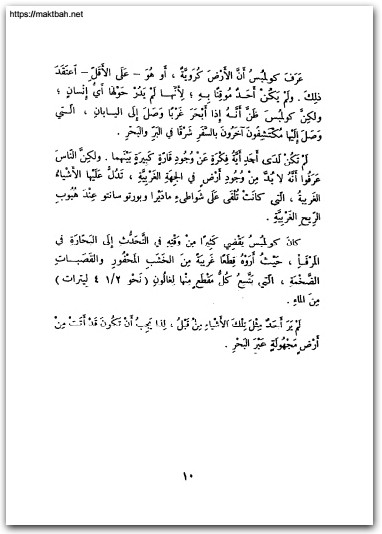 https://maktbah.net
عَرَفَ كولمبُس أنَّ الأَرْضَ كُرَوِيَّةٌ ، أو هُوَ – عَلَى الأَقَلِّ – اعتَقَدَ
ذلِكَ . ولَمْ يَكُنْ أَحَدٌ مُوقِنًا بِهِ ؛ لِأَنَّهَا لَمْ يَدُرْ حَوْلَهَا أَيُّ إنسانٍ ؛
ولكِنَّ كولمبُسَ ظَنَّ أَنَّهُ إذا أبْحَرَ غَرْبًا وَصَلَ إلى اليابانِ ، الَّتي
وَصَلَ إلَيْها مُكْتَشِفُونَ آخَرُونَ بِالسَّفَرِ شَرْقًا في البَرِّ والبَحْرِ .
لَمْ تَكُنْ لَدَى أَحَدٍ أَيَّةُ فِكْرَةٍ عَنْ وُجُودِ قَارَّةٍ كَبِيرَةٍ بَيْنَهما . ولكِنَّ النَّاسَ
عَرَفُوا أَنَّهُ لا بُدَّ مِنْ وُجُودِ أَرْضٍ في الجِهَةِ الغَرْبِيَّةِ ، تَدُلُّ عَلَيْهَا الأَشْيَاءُ
الغَرِيبةُ ، الَّتي كانَتْ تُلْقَى عَلَى شَواطِىءِ مادَيْرا وبورتو سانتو عِنْدَ هُبُوبِ
الرِّيحِ الغَرْبِيَّةِ .
كانَ كولمبُس يَقْضِي كَثِيرًا مِنْ وَقْتِهِ في التَّحَدُّثِ إلَى البَحَّارَةِ في
المَرْفَأِ ، حَيْثُ أَرَوْهُ قِطَعًا غَرِيبَةً مِنَ الخَشَبِ المَحْفُورِ والقَصَبَاتِ
الضَّخْمَةِ ، الَّتي يَتَّسِعُ كُلُّ مَقْطَعٍ مِنْها لِغالُونٍ ( نَحْوَ ١/٢ ٤ لِيترات )
مِنَ الماءِ .
لَمْ يَرَ أَحَدٌ مِثْلَ تِلْكَ الأَشْيَاءِ مِنْ قَبْلُ ، لِذا يَجِبُ أَنْ تَكُونَ قَدْ أَتَتْ مِنْ
أَرْضٍ مَجْهُولَةٍ عَبْرَ البَحْرِ .
١٠